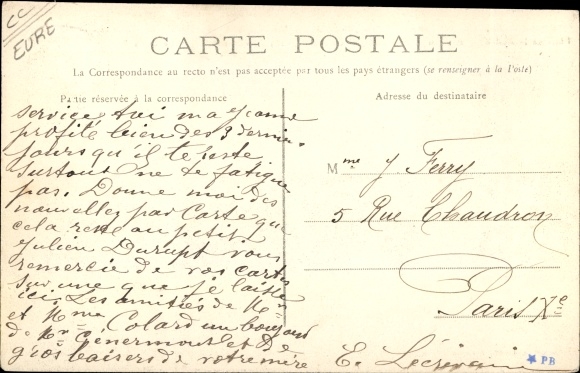 CC
EURE
CARTE POSTALE
La Correspondance au recto n'est pas acceptée par tous les pays étrangers (se renseigner à la Poste)
Partie réservée à la correspondance
Adresse du destinataire
service toi ma
profite bien des 3 derniers
jours qu'il te reste
surtout ne te fatigue
pas. Donne moi des
nouvelles par Carte que
cela reste au petit
Julien Durupt vous
remercie de vos cartes
sur une que je laisse
ici. Les amitiés de Mr
et Mme Colard un bonjour
de Mr Génermont et de
gros baisers de votre mère
E. Lécrivain
Mme J Ferry
5 Rue Chaudron
Paris Xe
PB